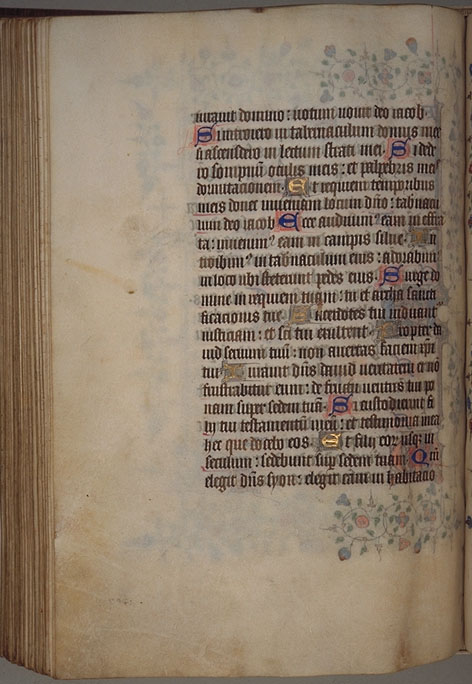 iurauit domino: uotum uouit deo iacob
Si introiero in tabernaculum domus mee
si ascendero in lectum strati mei. Si dede
ro sompnum oculis meis: et palpebris meis
dormitacionem. Et requiem temporibus
meis donec inueniam locum dño: tabnacu
lum deo iacob. Ecce audiuim⁹ eam in effra
ta: inuenim⁹ eam in campis silue. In
troibim⁹ in tabnaculum eius: adorabim⁹
in loco ubi steterunt pedes eius. Surge do
mine in requiem tuam: tu et archa sancti
ficacionis tue. Sacerdotes tui induant᷑
iusticiam: et sci tui exultent. Propter da
uid seruum tuū: non auertas faciem xpi
tui. Iurauit dñs dauid ueritatem et nō
frustrabitur eum: de fructu uentris tui po
nam super sedem tuā. Si custodierint fi
lij tui testamentū meū: et testimonia mea
hec que docebo eos. Et filij eor usqz in
seculum: sedebunt sup sedem tuam. Qm
elegit dñs syon: elegit eam in habitacio